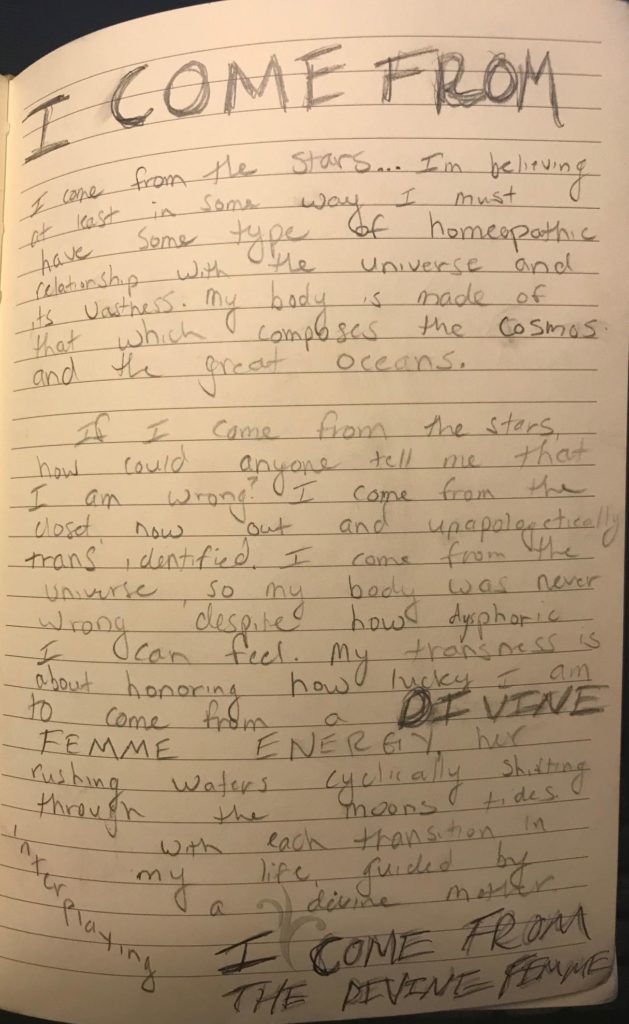 I COME FROM
I come from the stars... Im believing
at least in some way I must
have some type of homeopathic
relationship with the universe and
its vastness. My body is made of
that which composes the cosmos.
and the great oceans.
If I come from the stars,
how could anyone tell me that
I am wrong? I come from the
closet, now out and unapologetically
trans identified. I come from the
universe, so my body was never
wrong despite how dysphoric
I can feel. My transness is
about honoring how lucky I am
to come from a DIVINE
FEMME ENERGY, her
rushing waters cyclically shifting
through the moons tides.
with each transition in
my life, guided by
a divine mother.
interplaying
I COME FROM
THE DIVINE FEMME